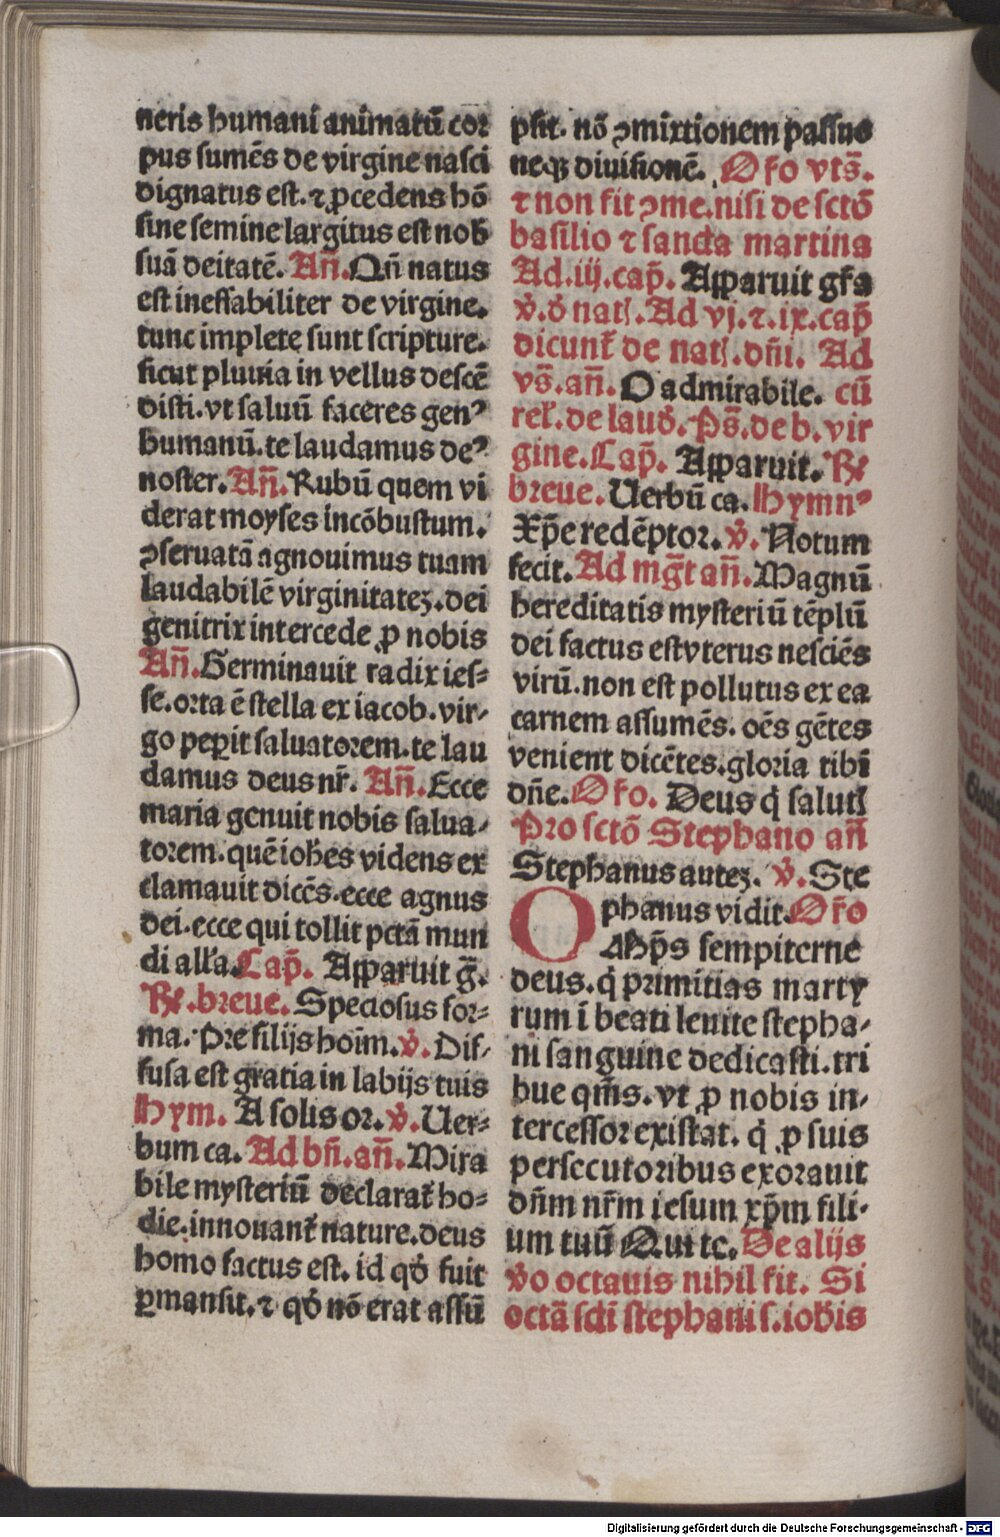 neris humani animatū cor
pus sumēs de virgine nasci
dignatus est. ⁊ ꝓcedens hō
sine semine largitus est nob̄
suā deitatē. Añ. Qñ natus
est ineffabiliter de virgine.
tunc implete sunt scripture.
sicut pluuia in vellus descē
disti. vt saluū faceres genꝰ
humanū. te laudamus deꝰ
noster. Añ. Rubū quem vi
derat moyses incōbustum.
ꝯseruatā agnouimus tuam
laudabilē virginitateꝫ. dei
genitrix intercede ꝓ nobis
Añ. Germinauit radix ies⸗
se. orta ē stella ex iacob. vir⸗
go peꝑit saluatorem. te lau
damus deus nr̄. Añ. Ecce
maria genuit nobis salua⸗
torem. quē ioħes videns ex
clamauit dicēs. ecce agnus
dei. ecce qui tollit pctā mun
di alľa. Cap̄. Apparuit ḡ.
℞. breue. Speciosus for⸗
ma. Pre filijs hoīm. v̄. Dif⸗
fusa est gratia in labijs tuis
Hym. A solis or. v̄. Uer⸗
bum ca. Ad bñ. añ. Mira
bile mysteriū declarat᷑ ho⸗
die. innouant᷑ nature. deus
homo factus est. id qď fuit
ꝑmansit. ⁊ qď nō erat assū
psit. nō ꝯmixtionem passus
neqꝫ diuisionē. Oŕo vts̄.
⁊ non fit ꝯme. nisi de sctō
basilio ⁊ sancta martina
Ad. iij. cap̄. Apparuit gŕa
v̄. ď natł. Ad vj. ⁊. ix. cap̄
dicunt᷑ de natł. dñi. Ad
vs̄. añ. O admirabile. cū
reł. de lauď. Ps̄. de b. vir
gine. Cap̄. Apparuit. ℞
breue. Uerbū ca. Hymnꝰ
Xp̄e redēptor. v̄. Notum
fecit. Ad mg̅t añ. Magnū
hereditatis mysteriū tēplū
dei factus est vterus nesciēs
virū. non est pollutus ex ea
carnem assumēs. oēs gētes
venient dicētes. gloria tibi
dñe. Oŕo. Deus q̇ salutł
Pro sctō Stephano añ
Stephanus auteꝫ. v̄. Ste
phanus vidit. Oŕo
OMp̄s sempiterne
deus. q̇ primitias marty
rum ī beati leuite stepha⸗
ni sanguine dedicasti. tri
bue qm̄s. vt ꝓ nobis in⸗
tercessor existat. q̇ ꝓ suis
persecutoribus exorauit
dñm nr̄m iesum xp̄m fili⸗
um tuū Qui ⁊c. De alijs
v̄o octauis nihil fit. Si
octā scti stephani s. ioħis
Digitalisierung gefördert durch die Deutsche Forschungsgemeinschaft - DFG